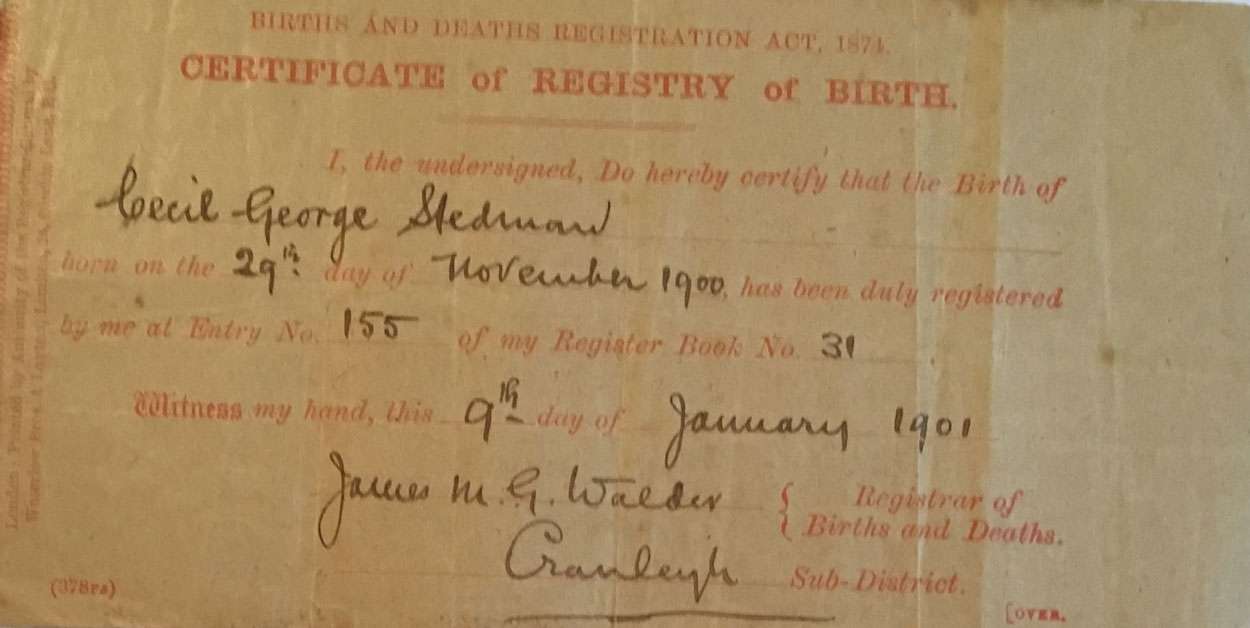 BIRTHS AND DEATHS REGISTRATION ACT, 1874.
CERTIFICATE of REGISTRY of BIRTH.
I, the undersigned, Do hereby certify that the Birth of
Cecil George Stedman
born on the 29th. day of November 1900, has been duly registered
by me at Entry No. 155 of my Register Book No. 31
Witness my hand, this 9th day of January 1901
James M. G. Walder { Registrar of
Births and Deaths.
Cranleigh Sub-District.
(378rs)
[OVER.
London: Printed by Authority of the Registrar-General by
Waterlow Bros. & London,